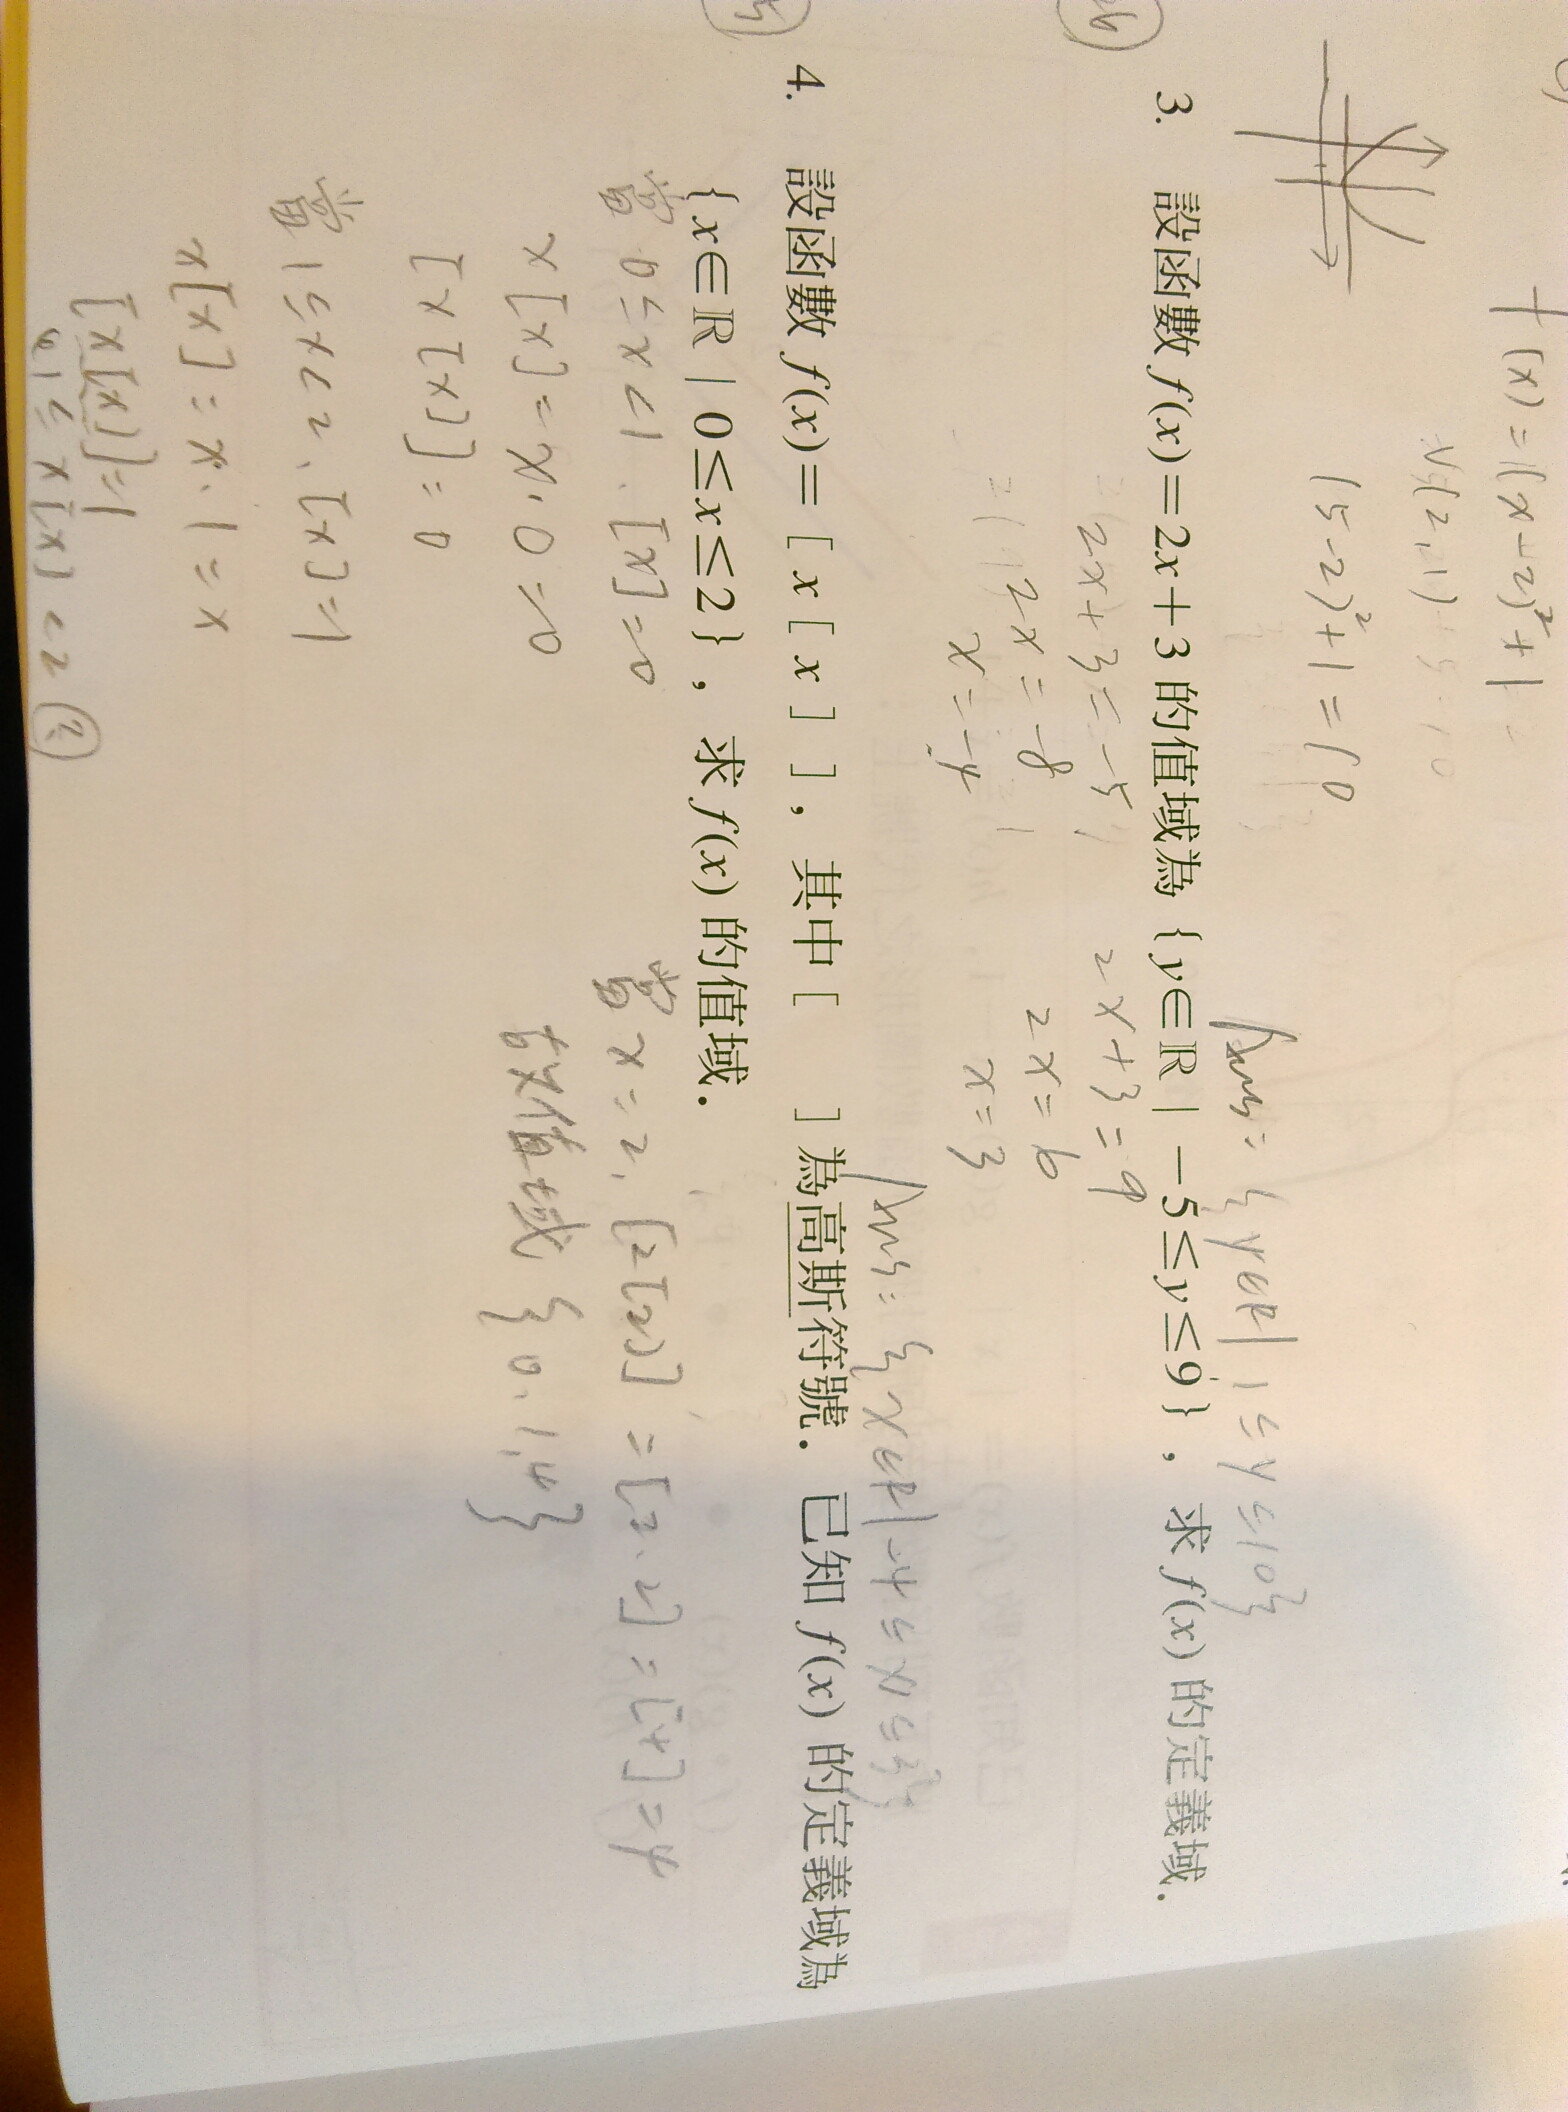 f(x) = 1(x-2)²+1
(5-2)²+1=10
Ans: {y∈R| 1≤y≤10}
3. 設函數 f(x)=2x+3 的值域為 {y∈R | -5≤y≤9}，求 f(x) 的定義域.
2x+3=-5 2x+3=9
2x=-8 2x=6
x=-4 x=3
Ans: {x∈R|-4≤x≤3}
4. 設函數 f(x)=[x[x]]，其中 [ ] 為高斯符號. 已知 f(x) 的定義域為
{x∈R | 0≤x≤2}，求 f(x) 的值域.
當 0≤x<1. [x]=0
x[x]=x.0=0
[x[x]]=0
當 1≤x<2. [x]=1
x[x]=x.1=x
[x[x]]=1
1≤x[x]<2
當 x=2, [2[2]]=[2.2]=[4]=4
故值域 {0.1,4}